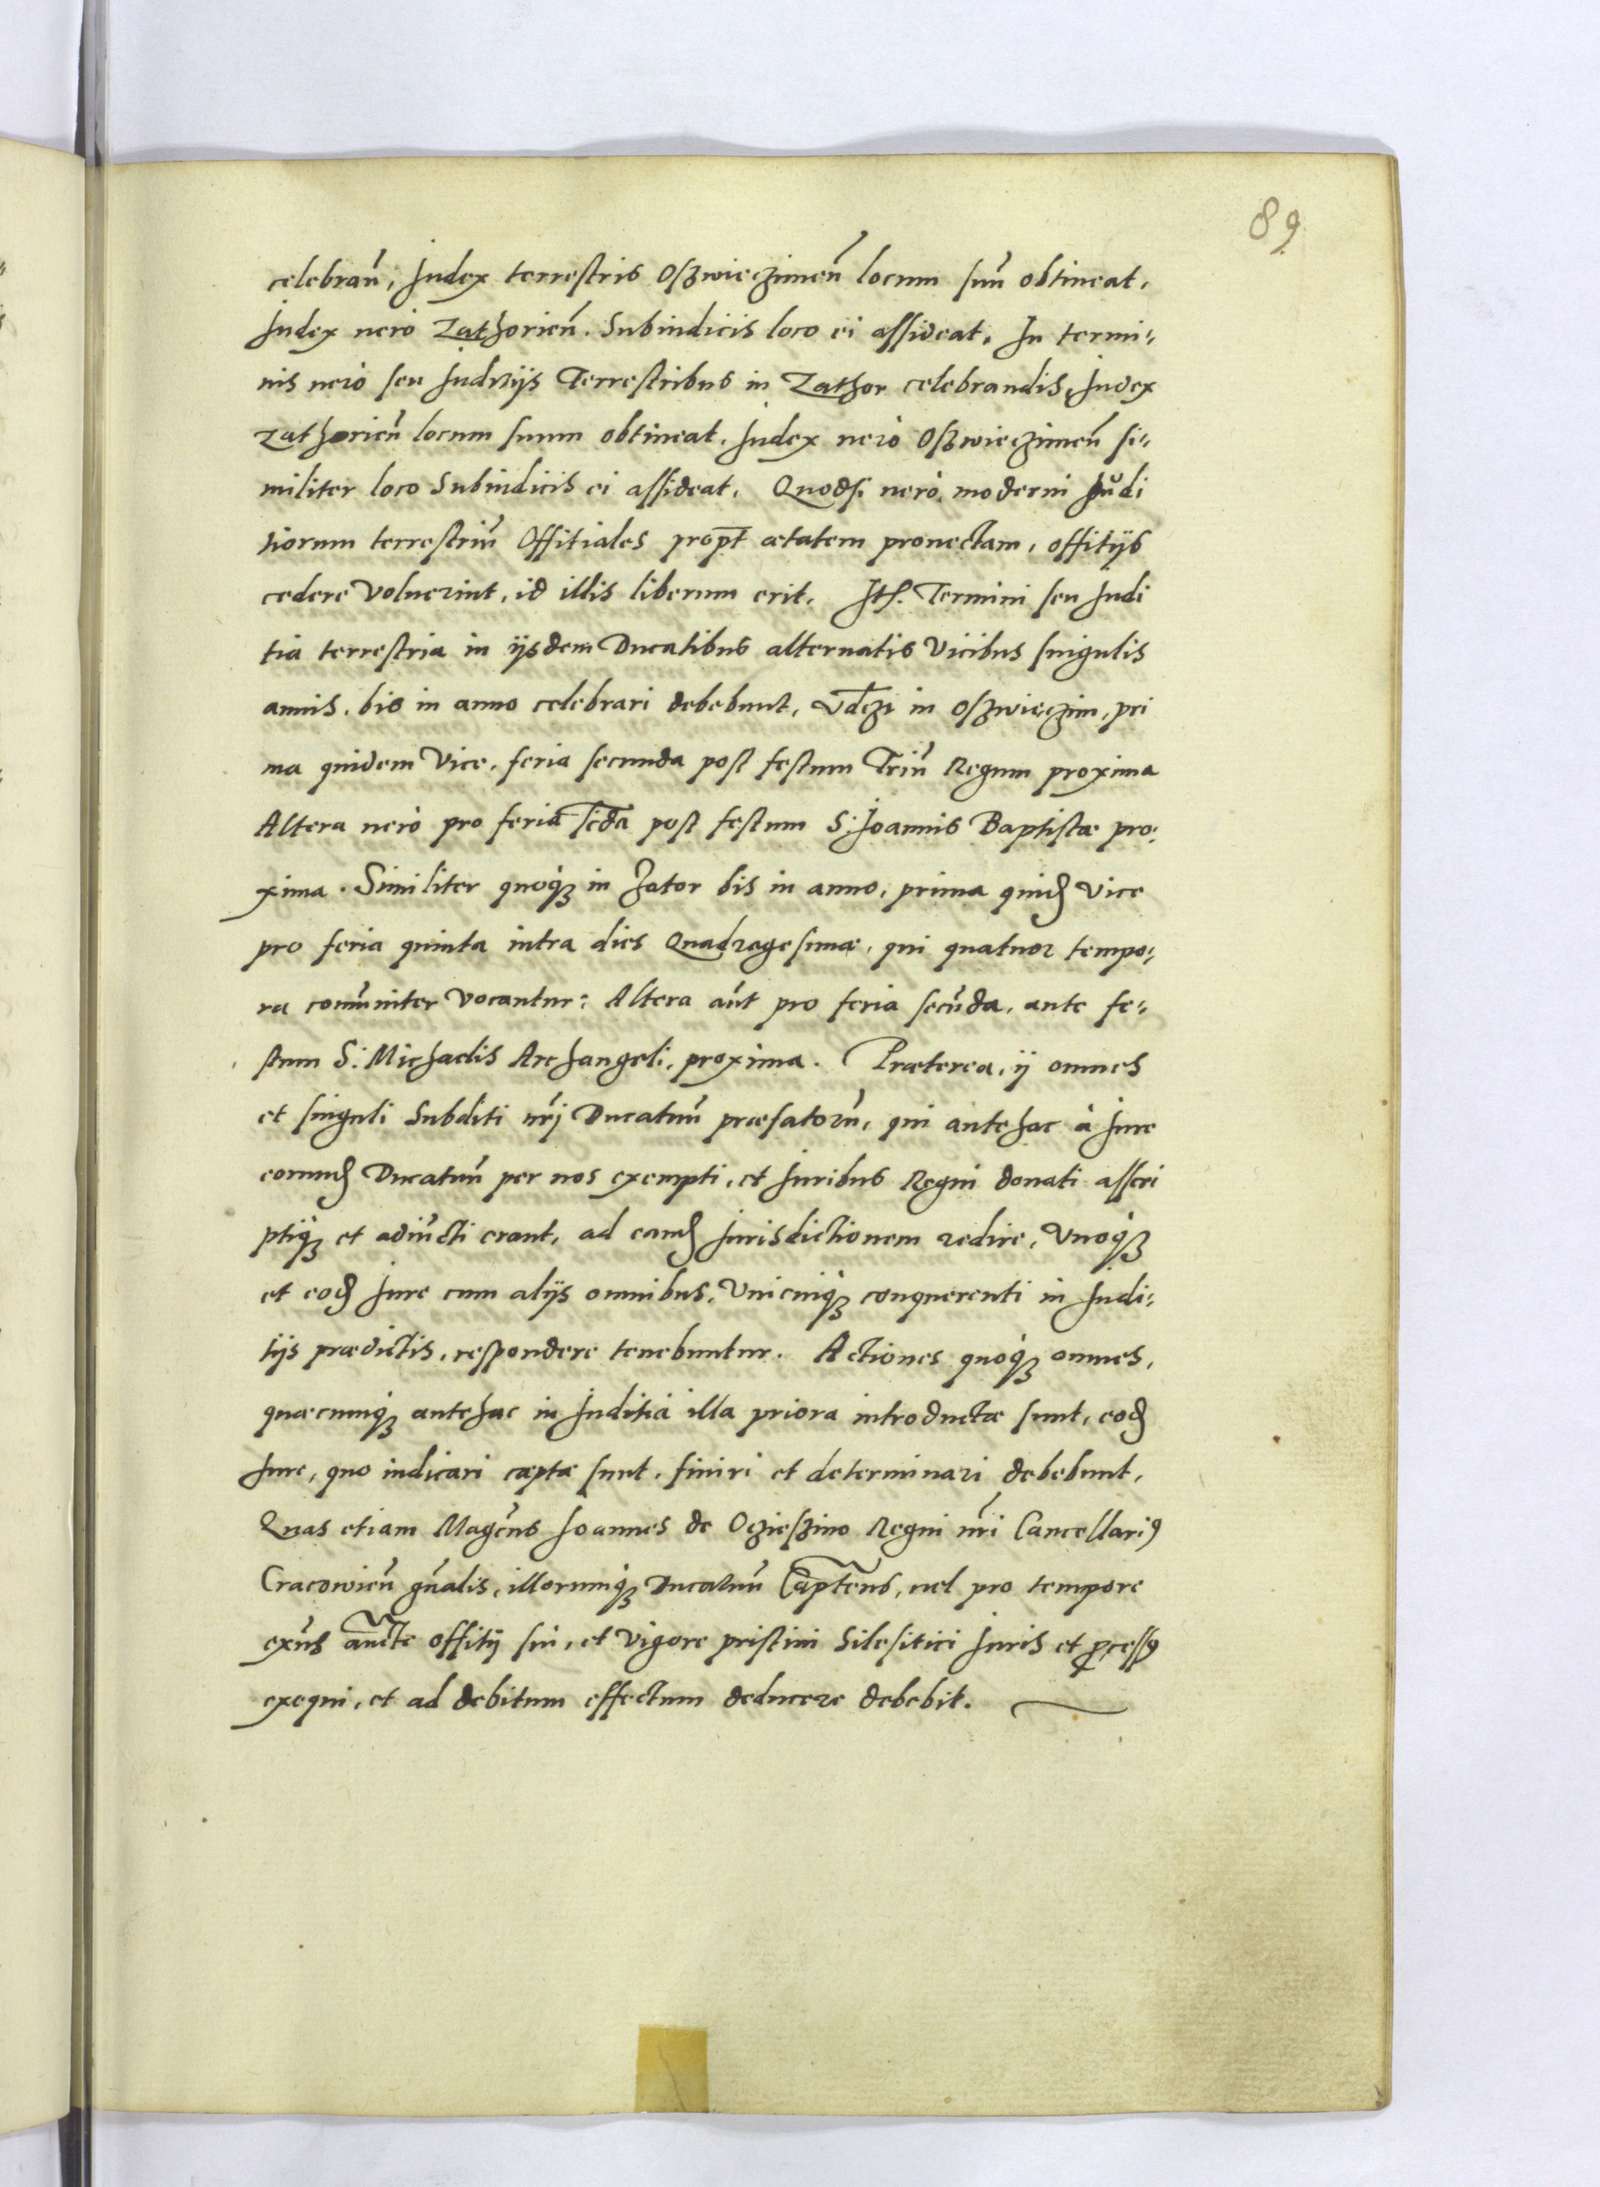 89
celebrañ, Iudex terrestris Oszwieczimeñ locum suũ obtineat,
Iudex verò Zathorieñ. Subiudicis loco ei assideat. In termi-
nis verò seu Iuditijs Terrestribus in Zathor celebrandis, Iudex
Zathorieñ locum suum obtineat. Iudex verò Oszwieczimeñ si-
militer loco Subiudicis ei assideat. Quodsi verò, moderni Iudi
tiorum terrestriũ Offitiales propt̃ ætatem provectam, offitijs
cedere voluerint, id illis liberum erit. Itẽ. Termini seu Iudi
tia terrestria in ijsdem Ducatibus alternatis vicibus singulis
annis, bis in anno celebrari debebunt, vdczi in Oszwieczim, pri
ma quidem vice, feria secunda post festum Triũ Regum proxima
Altera verò pro feria scda post festum S: Joannis Baptistæ pro:
xima. Similiter quoqꝫ in Zator bis in anno, prima quiđ vice
pro feria quinta intra dies Quadragesimæ, qui quatuor tempo:
ra com̃uniter vocantur: Altera aũt pro feria secũda, ante fe-
stum S: Michaelis Archangeli, proxima. Præterea, ij omnes
et singuli Subditi nr̃i Ducatuũ præfatorũ, qui antehac à Iure
eorunđ Ducatuũ per nos exempti, et Iuribus Regni donati asscri
ptiqꝫ et adiũcti erant, ad eanđ Iurisdictionem redire, Vnoqꝫ
et eođ Iure cum alijs omnibus, Vnicuiqꝫ conquerenti in Iudi-
tijs prædictis, respondere tenebuntur. Actiones quoqꝫ omnes,
quæcunqꝫ antehac in Iuditia illa priora introductæ sunt, eođ
Iure, quo iudicari cæptæ sunt, finiri et determinari debebunt,
Quas etiam Magc̃us Joannes de Oczieszino Regni nr̃i Cancellariꝰ
Cracowieñ gñalis, illorumqꝫ Ducatuũ Captẽus, vel pro tempore
exñs auc̃te offitij sui, et vigore pristini Silesitici Iuris et ꝓcessꝰ
exequi, et ad debitum effectum deducere debebit.